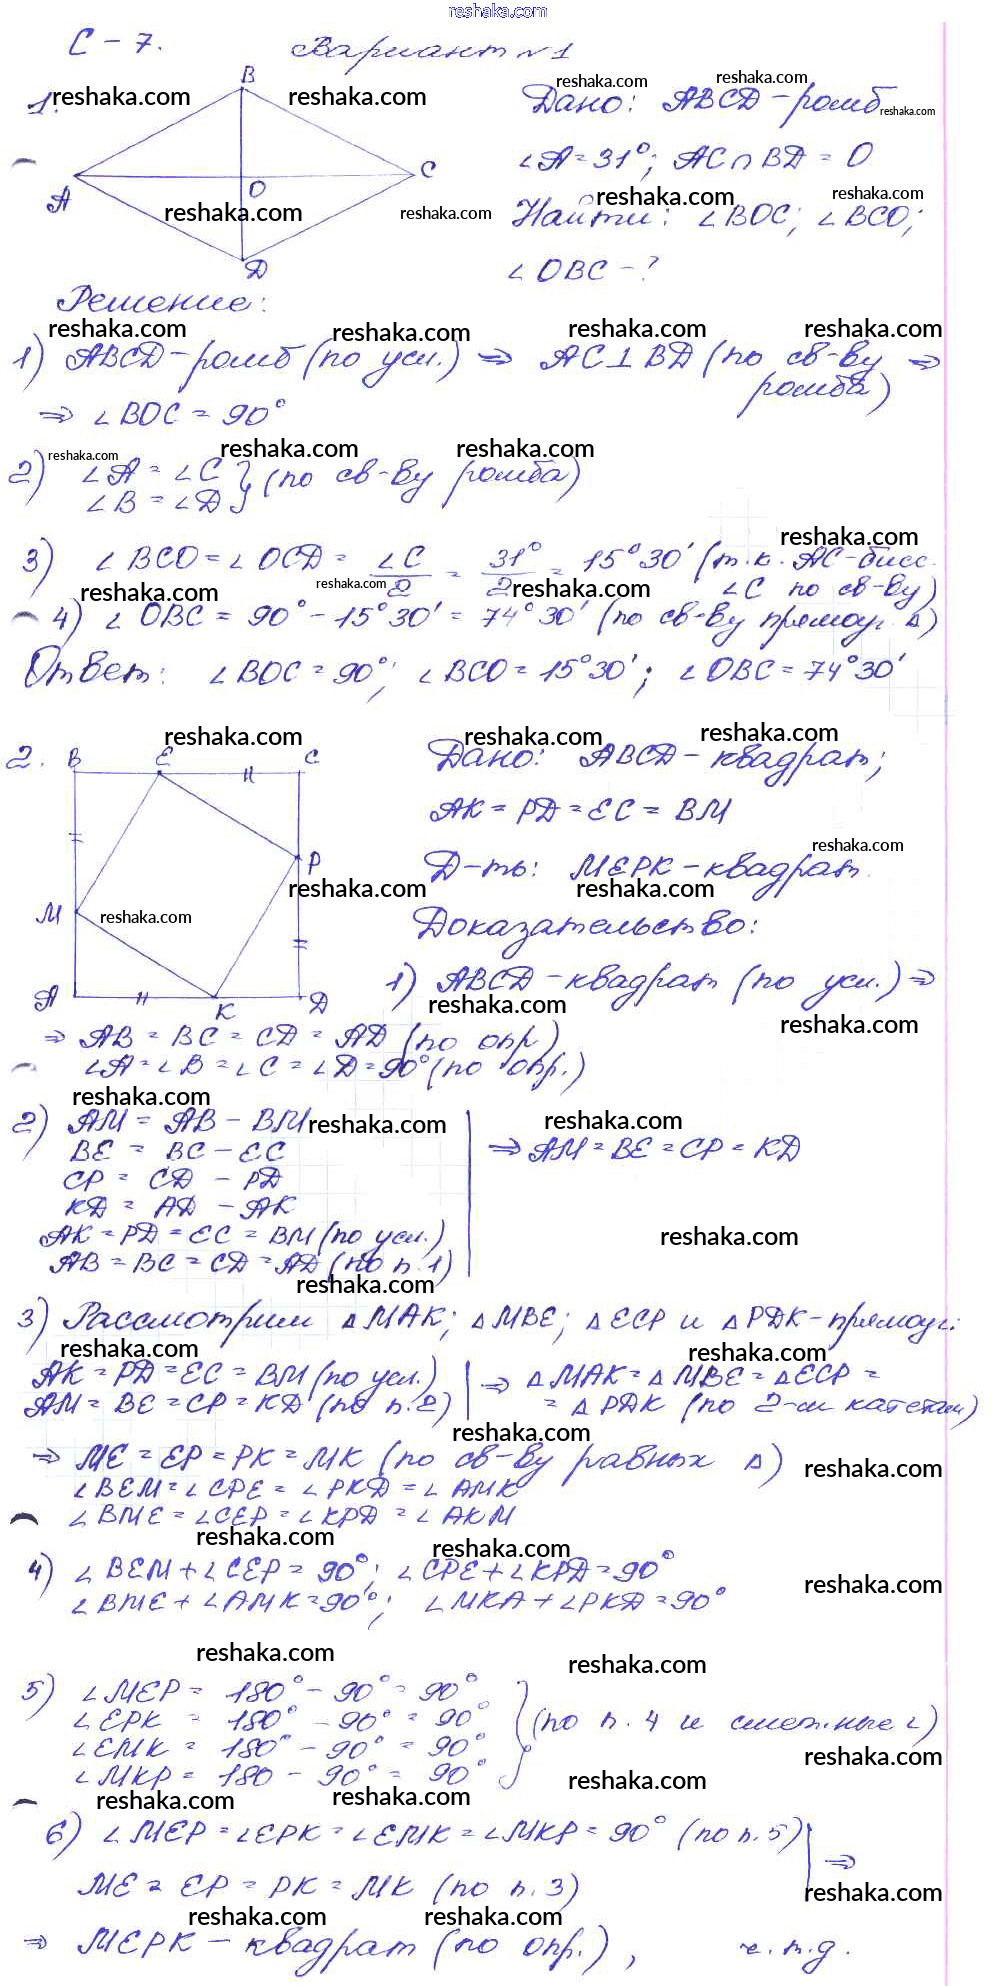 reshaka.com
С – 7. Вариант №1
1.
B
A
O
C
D
Дано: ABCD – ромб
∠A = 31°; AC ∩ BD = O
Найти: ∠BOC; ∠BCO;
∠OBC – ?
Решение:
1) ABCD – ромб (по усл.) ⇒ AC ⊥ BD (по св-ву ромба) ⇒
⇒ ∠BOC = 90°
2) ∠A = ∠C
∠B = ∠D } (по св-ву ромба)
3) ∠BCO = ∠OCD = ∠C/2 = 31°/2 = 15°30′ (т.к. AC – бисс.
∠C по св-ву)
4) ∠OBC = 90° – 15°30′ = 74°30′ (по св-ву прямоуг. △)
Ответ: ∠BOC = 90°; ∠BCO = 15°30′; ∠OBC = 74°30′
2.
B E C
P
M
A K D
Дано: ABCD – квадрат;
AK = PD = EC = BM
Д-ть: MEPK – квадрат.
Доказательство:
1) ABCD – квадрат (по усл.) ⇒
⇒ AB = BC = CD = AD (по опр)
∠A = ∠B = ∠C = ∠D = 90° (по опр.)
2) AM = AB – BM
BE = BC – EC
CP = CD – PD
KD = AD – AK
AK = PD = EC = BM (по усл.)
AB = BC = CD = AD (по п.1)
⇒ AM = BE = CP = KD
3) Рассмотрим △MAK; △MBE; △ECP и △PDK – прямоуг.:
AK = PD = EC = BM (по усл.)
AM = BE = CP = KD (по п.2)
⇒ △MAK = △MBE = △ECP =
= △PDK (по 2-м катетам)
⇒ ME = EP = PK = MK (по св-ву равных △)
∠BEM = ∠CPE = ∠PKD = ∠AMK
∠BME = ∠CEP = ∠KPD = ∠AKM
4) ∠BEM + ∠CEP = 90°; ∠CPE + ∠KPD = 90°
∠BME + ∠AMK = 90°; ∠MKA + ∠PKD = 90°
5) ∠MEP = 180° – 90° = 90°
∠EPK = 180° – 90° = 90°
∠EMK = 180° – 90° = 90°
∠MKP = 180 – 90° = 90°
(по п.4 и смежные ∠)
6) ∠MEP = ∠EPK = ∠EMK = ∠MKP = 90° (по п.5)
ME = EP = PK = MK (по п.3)
⇒
⇒ MEPK – квадрат (по опр.), ч.т.д.